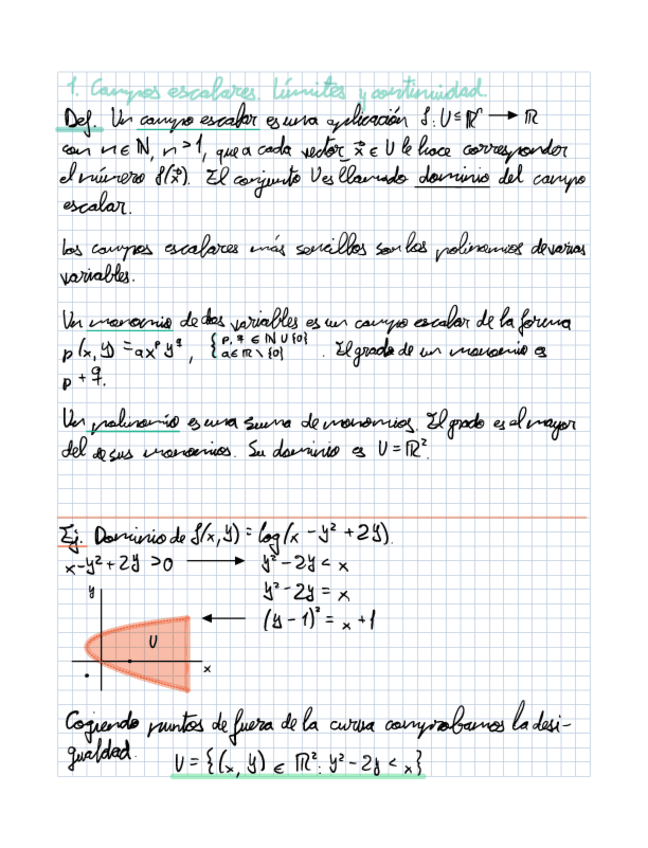 1. Campos escalares. Límites y continuidad.
Def. Un campo escalar es una aplicación f: U ⊆ ℝⁿ → ℝ
con n ∈ ℕ, n > 1, que a cada vector x⃗ ∈ U le hace corresponder
el número f(x⃗). El conjunto U es llamado dominio del campo
escalar.
Los campos escalares más sencillos son los polinomios de varias
variables.
Un monomio de dos variables es un campo escalar de la forma
p(x, y) = axᵖ y^q, { p, q ∈ ℕ ∪ {0} a ∈ ℝ \ {0} . El grado de un monomio es
p + q.
Un polinomio es una suma de monomios. El grado es el mayor
del de sus monomios. Su dominio es U = ℝ².
Ej. Dominio de f(x, y) = log(x - y² + 2y).
x - y² + 2y > 0 → y² - 2y < x
y² - 2y = x
← (y - 1)² = x + 1
y
U
x
Cogiendo puntos de fuera de la curva comprobamos la desi-
gualdad.
U = {(x, y) ∈ ℝ²: y² - 2y < x}